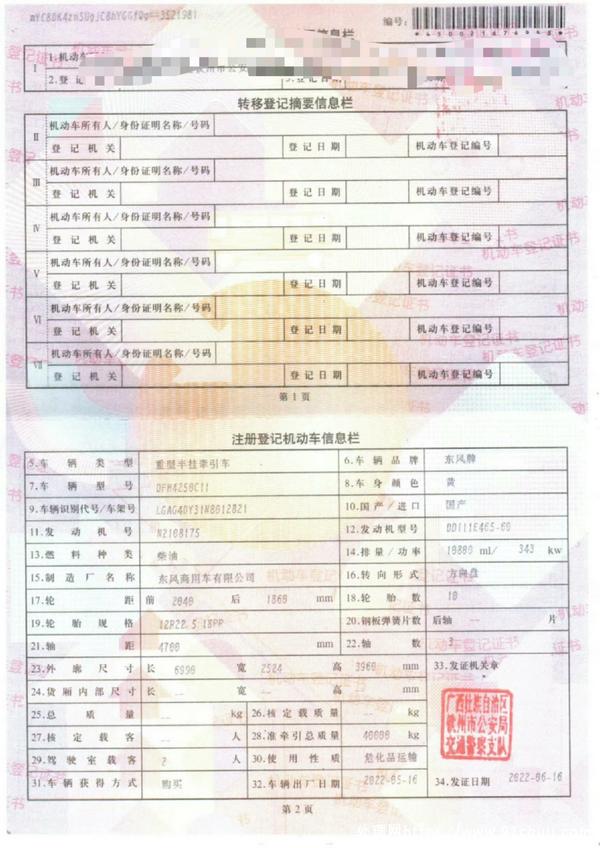 编号:
1.机动车
2.登记
转移登记摘要信息栏
II 机动车所有人/身份证明名称/号码
登记机关 登记日期 机动车登记编号
III 机动车所有人/身份证明名称/号码
登记机关 登记日期 机动车登记编号
IV 机动车所有人/身份证明名称/号码
登记机关 登记日期 机动车登记编号
V 机动车所有人/身份证明名称/号码
登记机关 登记日期 机动车登记编号
VI 机动车所有人/身份证明名称/号码
登记机关 登记日期 机动车登记编号
VII 机动车所有人/身份证明名称/号码
登记机关 登记日期 机动车登记编号
第1页
注册登记机动车信息栏
5.车辆类型 重型半挂牵引车 6.车辆品牌 东风牌
7.车辆型号 DFH4250C11 8.车身颜色 黄
9.车辆识别代号/车架号 10.国产/进口 国产
11.发动机号 N2108175 12.发动机型号
13.燃料种类 柴油 14.排量/功率 ml/ 343 kw
15.制造厂名称 东风商用车有限公司 16.转向形式 方向盘
17.轮距 前 2040 后 1860 mm 18.轮胎数 10
19.轮胎规格 12R22.5 18PR 20.钢板弹簧片数 后轴 -- 片
21.轴距 4700 mm 22.轴数 3
23.外廓尺寸 长 6990 宽 2524 高 3960 mm 33.发证机关章
24.货厢内部尺寸 长 -- 宽 -- 高 -- mm
25.总质量 -- kg 26.核定载质量 -- kg
27.核定载客 -- 人 28.准牵引总质量 40000 kg
29.驾驶室载客 2 人 30.使用性质 危化品运输
31.车辆获得方式 购买 32.车辆出厂日期 2022-05-16 34.发证日期 2022-06-16
广西壮族自治区
钦州市公安局
交通警察支队
第2页